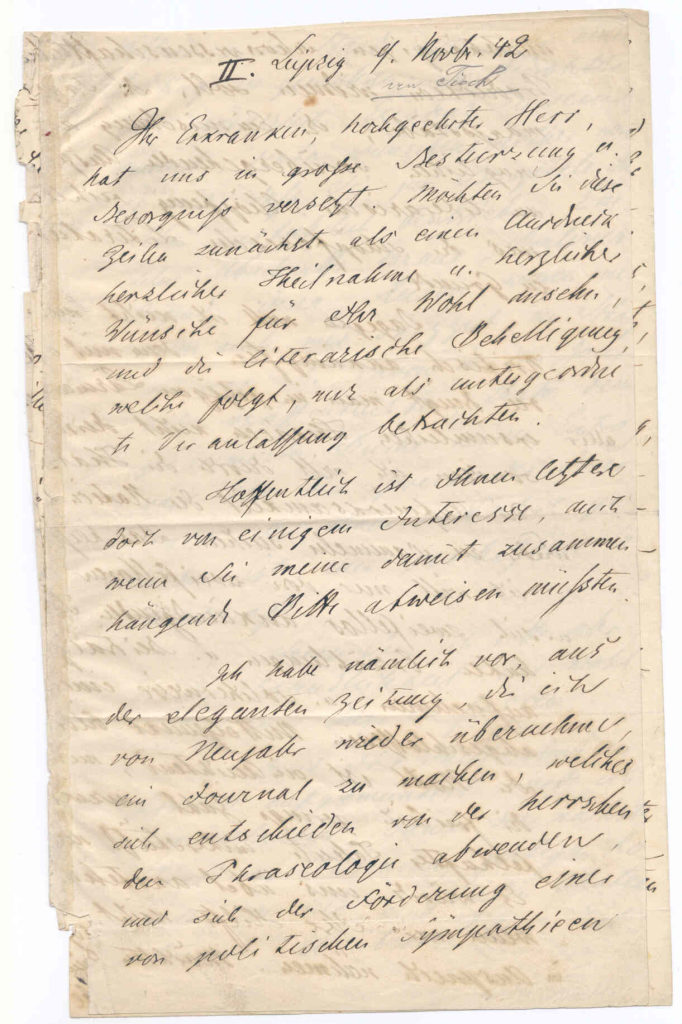 II. Leipzig 9. Novbr. 42
Ihr Erkranken, hochgeehrter Herr,
hat uns in große Bestürzung u.
Besorgniß versetzt. Möchten Sie diese
Zeilen zunächst als einen Ausdruck
herzlicher Theilnahme u. herzlicher
Wünsche für Ihr Wohl ansehen,
und die literarische Behelligung,
welche folgt, nur als untergeordne
te Veranlassung betrachten.
Hoffentlich ist Ihnen letztere
doch von einigem Interesse, auch
wenn Sie meine damit zusammen
hängende Bitte abweisen müßten.
Ich habe nämlich vor, aus
der eleganten Zeitung, die ich
von Neujahr wieder übernehme,
ein Journal zu machen, welches
sich entschieden von der herrschen
den Phraseologie abwenden,
und sich der Förderung einer
von politischen Sympathieen